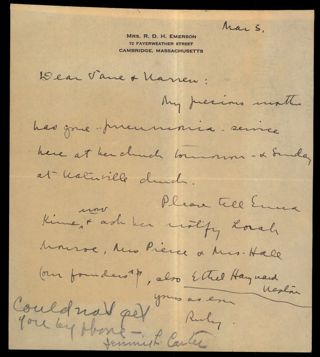 Mar 3.
MRS. R. D. H. EMERSON
72 FAYERWEATHER STREET
CAMBRIDGE, MASSACHUSETTS
Dear Jane & Warren:
My precious mother
has gone - pneumonia - service
here at her church tomorrow - & Sunday
at church.
Please tell Emma
now
& ask her notify Sarah
Monroe, Mrs Pierce & Mrs. Hall
(our founders), also Ethel Hayward
yours as ever
Ruby
Could not get
you by phone -
Carter